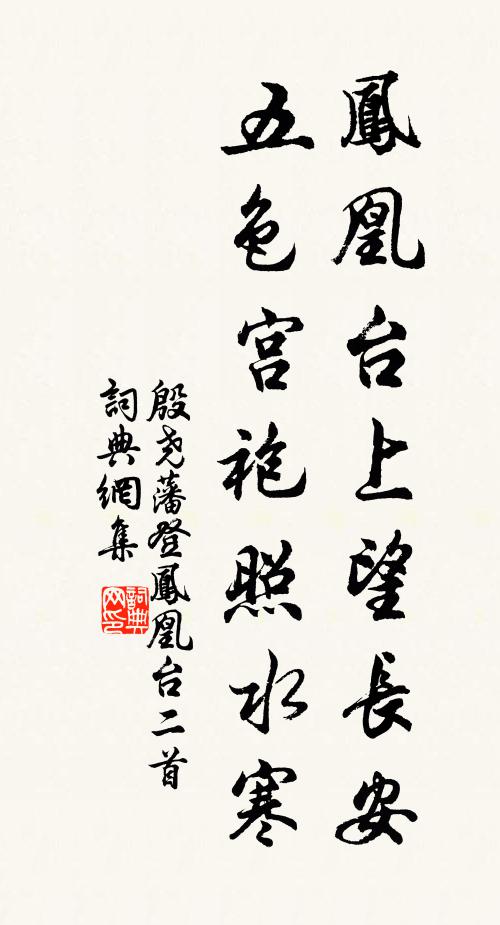 鳳凰台上望長安
五色宮袍照水寒
殷堯藩登鳳凰台二首
詞典網集
詞典网印